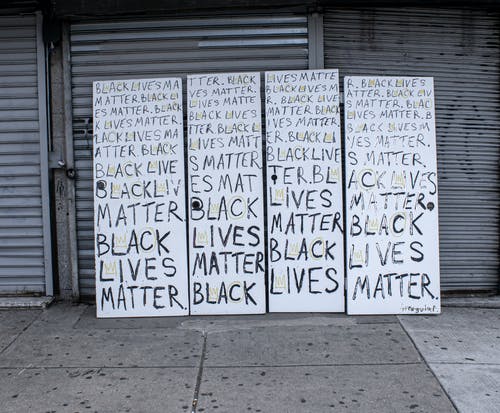 BLACK LIVES MA
MATTER. BLACK LI
ES MATTER. BLACK
MATTER. BLACK LI
LACK LIVES MA
ATTER. BLACK
BLACK LIVE
BLACK LIV
MATTER.
BLACK
LIVES
MATTER.
TTER. BLACK
LIVES MATTE
BLACK LIVES
MATTER.
BLACK LIVE
S MATTER
ES MAT
BLACK
LIVES
MATTER
BLACK
LIVES MATTE
R. BLACK LIVES
MATTER. BLACK
LIVES MATTE
R. BLACK
BLACK LIVE
TER BL
LIVES
MATTER
BLACK
LIVES
R. BLACK LIVES
MATTER. BLACK
LIVES MATTER.
BLACK LIVES
MATTER.
S MATTER
ACK LIVES
MATTER.
BLACK
LIVES
MATTER.